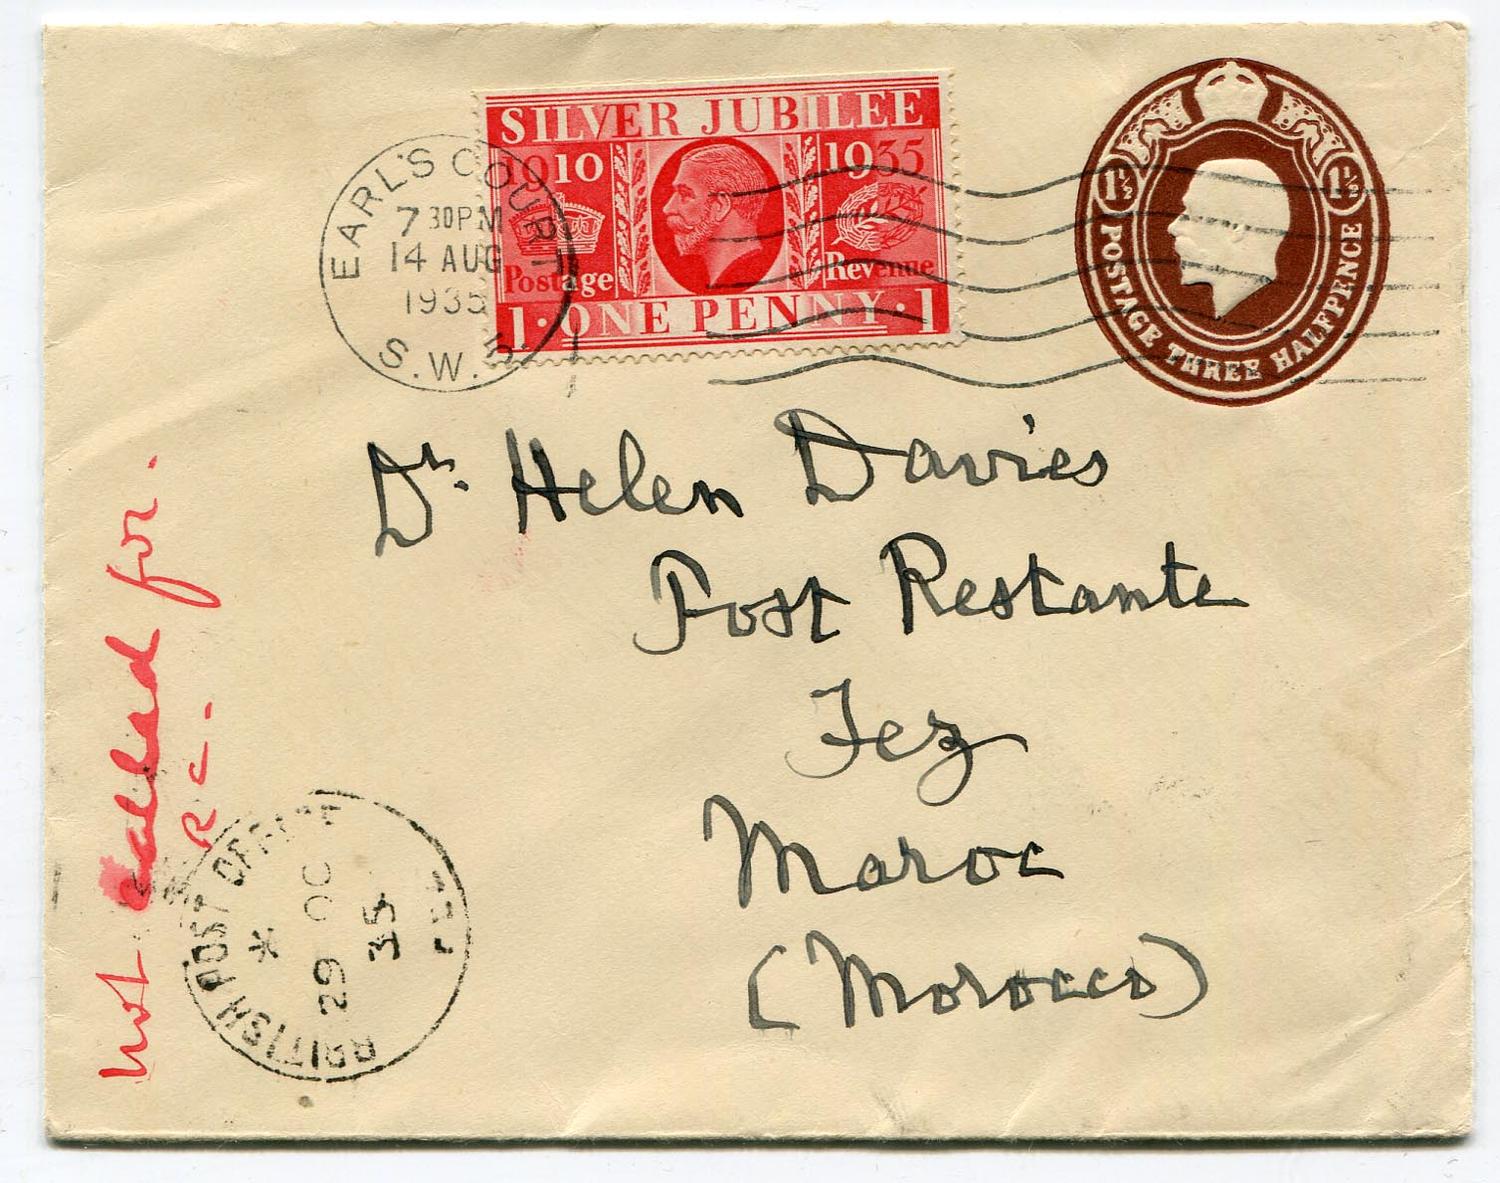 SILVER JUBILEE
1910 1935
Postage Revenue
1 · ONE PENNY · 1
1½ 1½
POSTAGE THREE HALFPENCE
EARL'S COURT
7 30PM
14 AUG
1935
S.W.5.
Dr. Helen Davies
Post Restante
Fez
Maroc
(Morocco)
Not called for.
R C-
BRITISH POST OFFICE
*
29 OC
35
FEZ